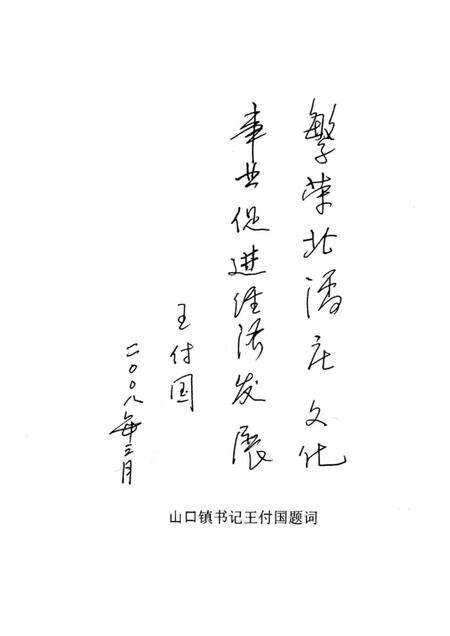 繁荣北潘庄文化
事业促进经济发展
王付国
二〇〇八年三月
山口镇书记王付国题词